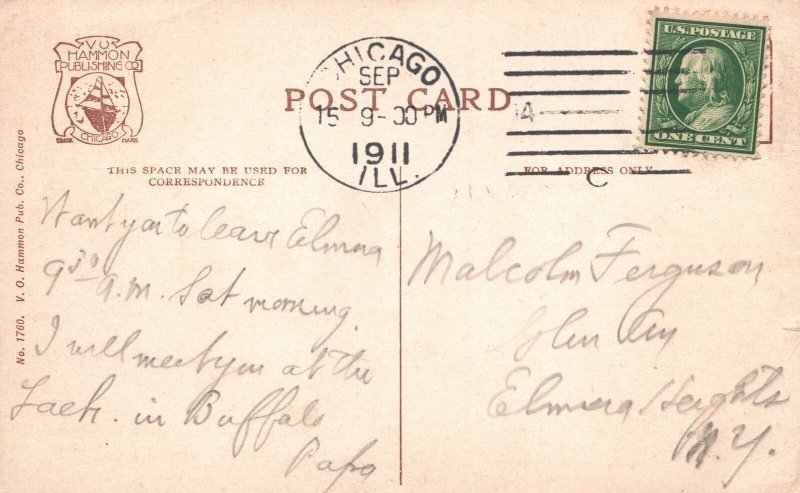 V O
HAMMON
PUBLISHING CO
CHICAGO
TRADE MARK
No. 1760. V. O. Hammon Pub. Co., Chicago
POST CARD
CHICAGO
SEP
15 9-00 PM
1911
ILL.
4
C
U.S. POSTAGE
ONE CENT
THIS SPACE MAY BE USED FOR
CORRESPONDENCE
FOR ADDRESS ONLY
Want you to leave Elmira
9 30 A.M. Sat morning.
I will meet you at the
Lack. in Buffalo
Papa
Malcolm Ferguson
Elmira Heights
N.Y.